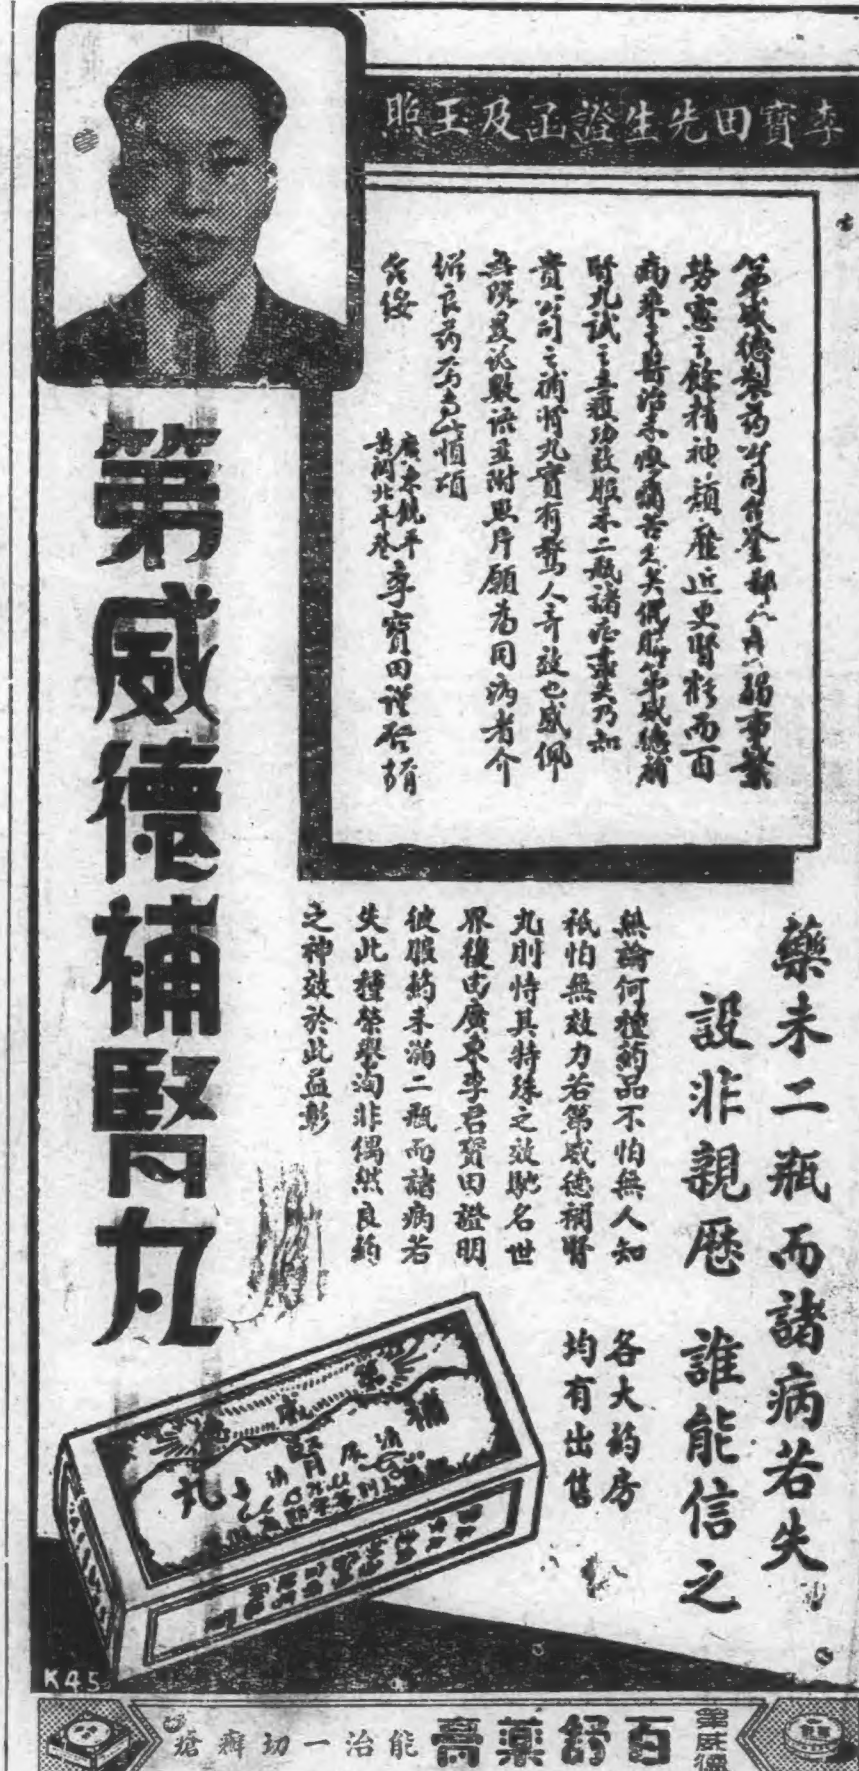 李寶田先生證函及玉照
第威德製药公司台鉴鄙人身弱事繁
劳憲之餘精神頹靡近更腎虧而百
病来主醫治未愈痛苦之美偶購第威德補
腎丸試之立獲功效服未二瓶諸症盡失乃知
貴公司之補腎丸實有驚人奇效也感佩
無既爰誌數语並附照片願為同病者介
绍良药耑此順頌
台绥
廣東開平
黄閣北平巷
李寶田谨啓
藥未二瓶而諸病若失
設非親歷 誰能信之
無論何種葯品不怕無人知
祇怕無效力若第威德補腎
丸則恃其特殊之效馳名世
界復由廣東李君寶田證明
彼服葯未滿二瓶而諸病若
失此種榮譽洵非偶然良葯
之神效於此益彰
各大葯房
均有出售
第威德補腎丸
補
丸
K45
第威德
百舒藥膏
能治一切癬瘡